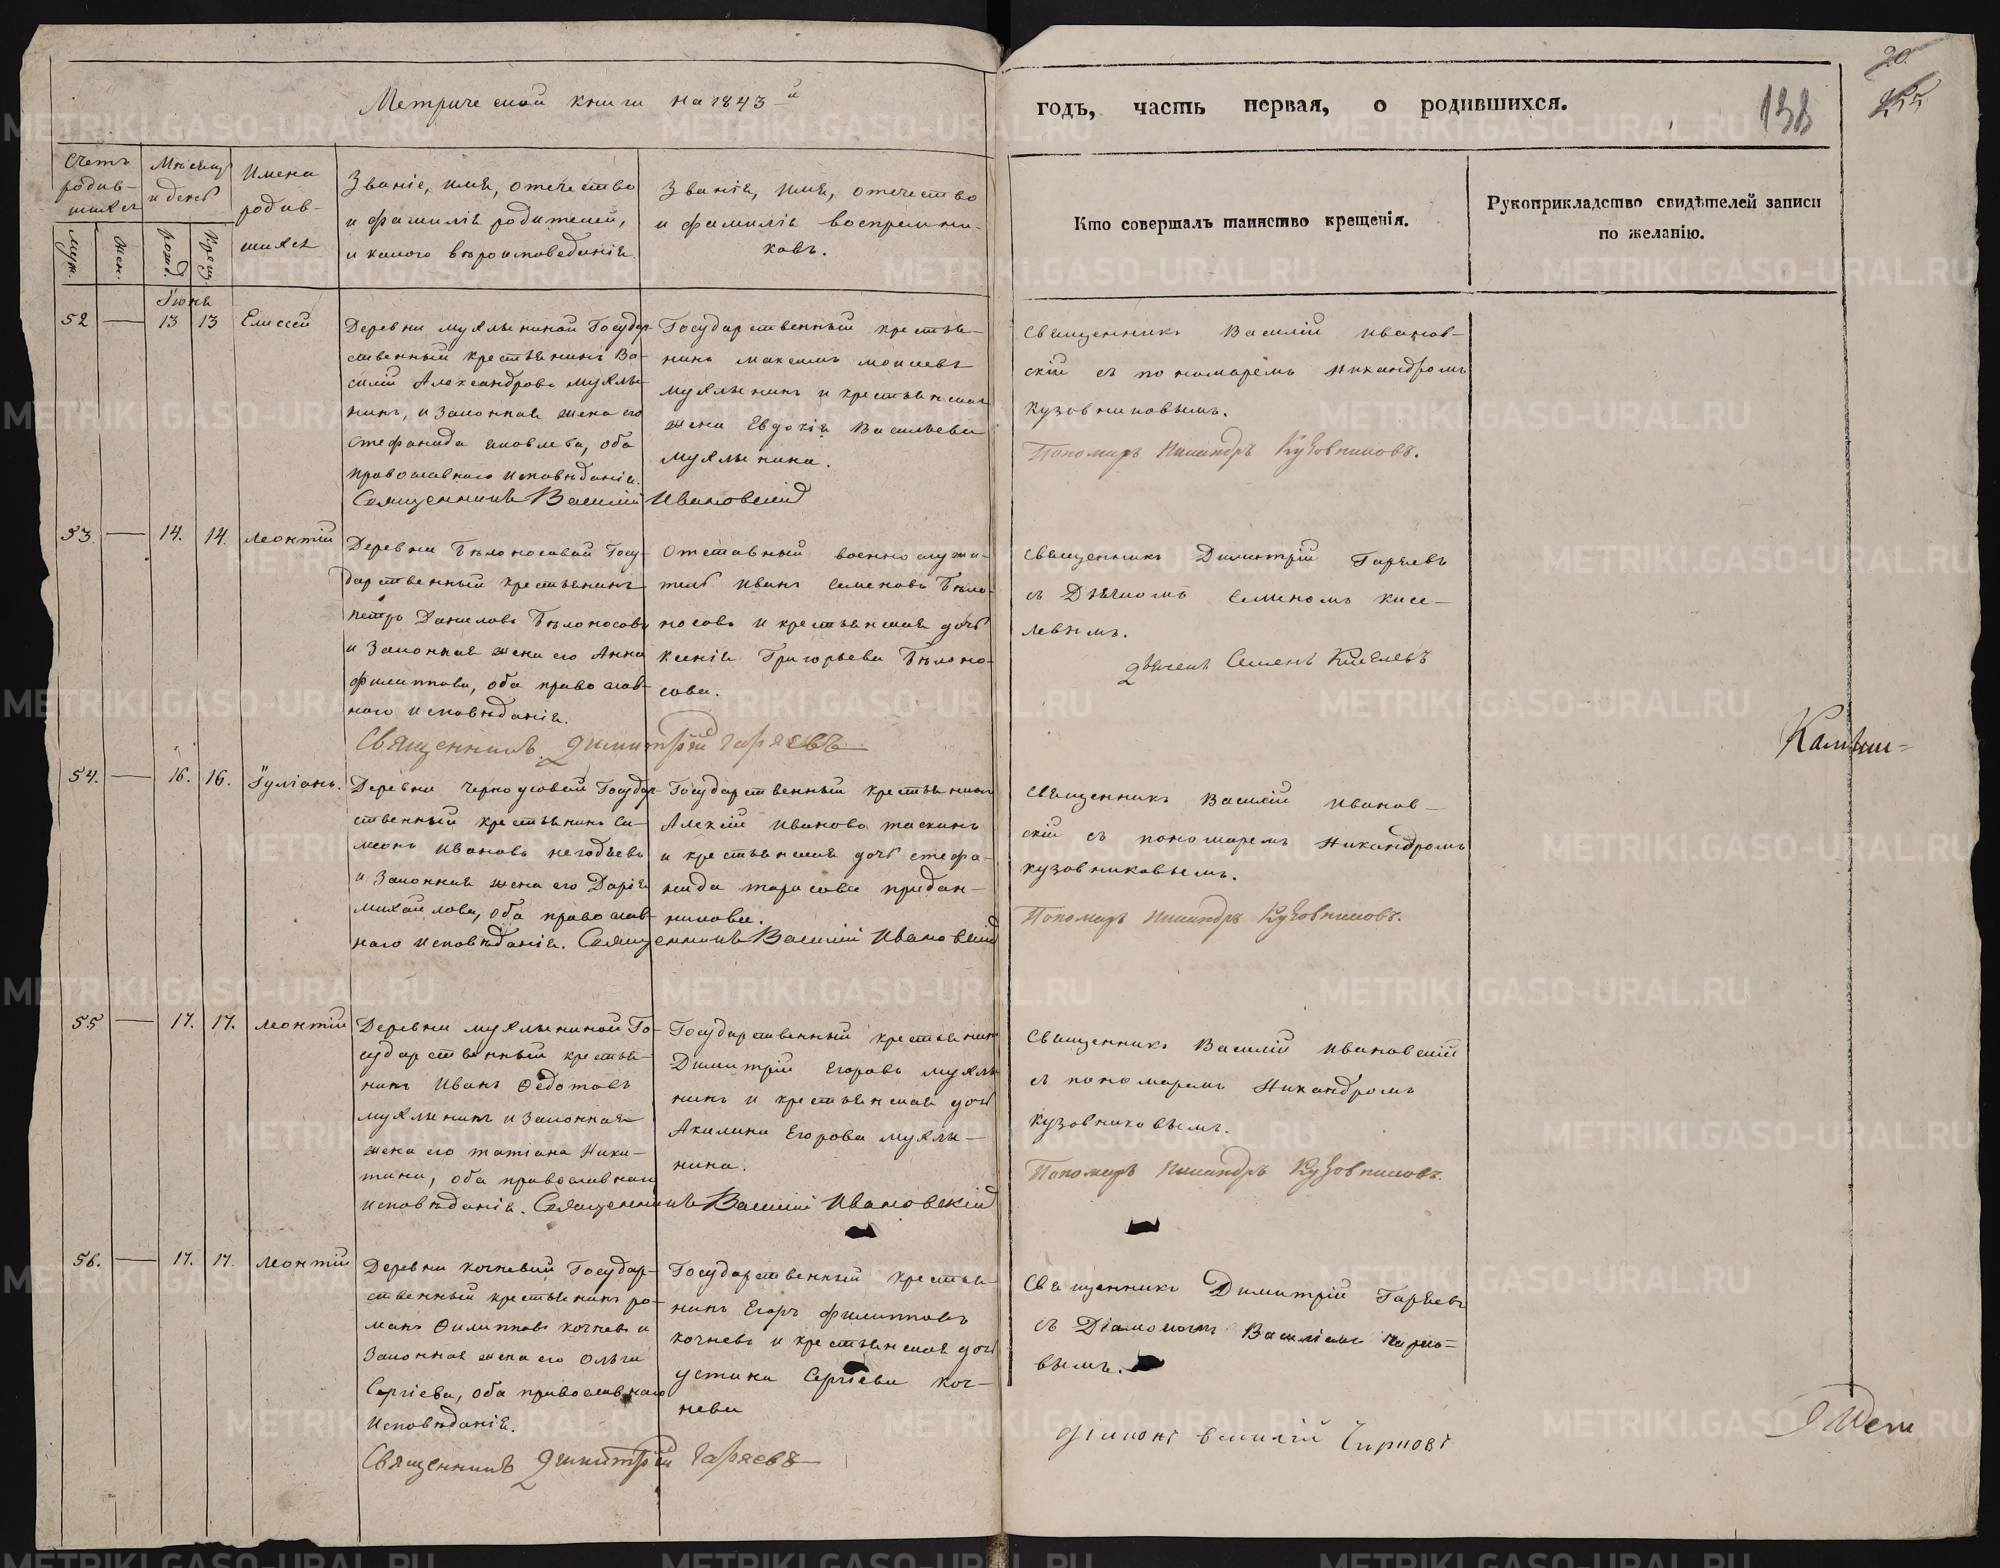 Метрической книги на 1843-й
годъ, часть первая, о родившихся.
138
20
Счетъ родив-шихся
Мѣсяцъ и день
Имена родив-шихся
Званіе, имя, отечество
и фамилія родителей,
и какого вѣроисповеданія.
Званіе, имя, отечество
и фамилія воспреемни-
ковъ.
Кто совершалъ таинство крещенія.
Рукоприкладство свидѣтелей записи
по желанію.
муж.
жен.
рожд.
крещ.
Іюня
52 — 13 13 Елисей
Деревни Мухлыниной Государ-
ственный крестьянинъ Ва-
силій Александровъ Мухлы-
нинъ, и законная жена его
Стефанида Яковлева, оба
православнаго исповѣданія.
Государственный крестья-
нинъ Максимъ Моисеевъ
Мухлынинъ и крестьянская
жена Евдокія Васильева
Мухлынина.
Священникъ Василій Ивановскій
Священникъ Василій Иванов-
скій съ пономаремъ Никандромъ
Кузовниковымъ.
Пономарь Никандръ Кузовниковъ.
53. — 14. 14. Леонтій
Деревни Бѣлоносовой Госу-
дарственный крестьянинъ
Петръ Даниловъ Бѣлоносовъ
и законная жена его Анна
Филиппова, оба православ-
наго исповѣданія.
Отставный военнослужи-
тель Иванъ Семеновъ Бѣло-
носовъ и крестьянская дочь
Ксенія Григорьева Бѣлоно-
сова.
Священникъ Димитрій Гаряевъ
Священникъ Димитрій Гаряевъ
съ Дьячкомъ Семеномъ Кисе-
левымъ.
Дьячекъ Семенъ Киселевъ
Камыш=
54. — 16. 16. Іуліанъ.
Деревни Черноусовой Государ-
ственный крестьянинъ Си-
меонъ Ивановъ Негодяевъ
и законная жена его Дарія
Михайлова, оба православ-
наго исповѣданія. Священникъ Василій Ивановскій
Государственный крестьянинъ
Алексій Ивановъ Таскинъ
и крестьянская дочь Стефа-
нида Тарасова Придан-
никова.
Священникъ Василій Иванов-
скій съ пономаремъ Никандромъ
Кузовниковымъ.
Пономарь Никандръ Кузовниковъ.
55 — 17. 17. Леонтій
Деревни Мухлыниной Го-
сударственный крестья-
нинъ Иванъ Ѳедотовъ
Мухлынинъ и законная
жена его Татіана Ники-
тина, оба православнаго
исповѣданія. Священникъ Василій Ивановскій
Государственный крестьянинъ
Димитрій Егоровъ Мухлы-
нинъ и крестьянская дочь
Акилина Егорова Мухлы-
нина.
Священникъ Василій Ивановскій
съ пономаремъ Никандромъ
Кузовниковымъ.
Пономарь Никандръ Кузовниковъ.
56. — 17. 17. Леонтій
Деревни Кочневой Государ-
ственный крестьянинъ Ро-
манъ Филипповъ Кочневъ и
законная жена его Ольга
Сергіева, оба православнаго
исповѣданія.
Государственный крестья-
нинъ Егоръ Филипповъ
Кочневъ и крестьянская дочь
Устина Сергіева Коч-
нева
Священникъ Димитрій Гаряевъ
Священникъ Димитрій Гаряевъ
съ Діакономъ Василіемъ Чирко-
вымъ.
Діаконъ Василій Чирковъ
METRIKI.GASO-URAL.RU